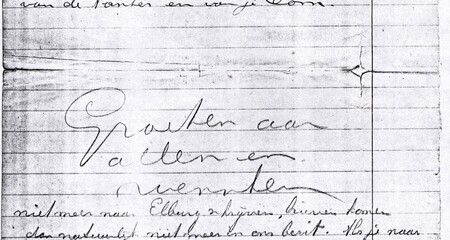 van de Tantes en van je Oom.
Groeten aan
allen en
vrienden
niet meer naar Elburg schrijven, brieven komen
dan natuurlijk niet meer in ons bezit. Als je naar